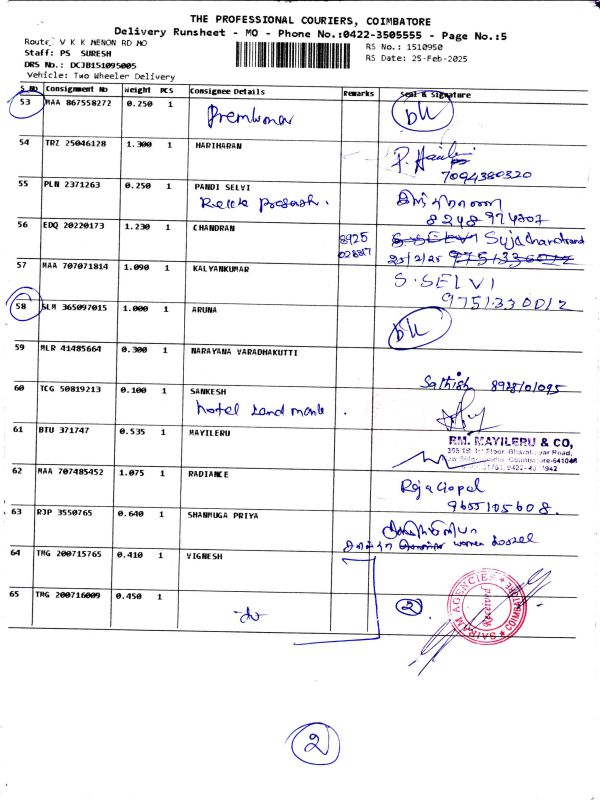 THE PROFESSIONAL COURIERS, COIMBATORE
Delivery Runsheet - MO - Phone No.:0422-3505555 - Page No.:5
Route: V K K MENON RD MO
RS No.: 1510950
Staff: PS SURESH
RS Date: 25-Feb-2025
DRS No.: DCJB151095005
Vehicle: Two Wheeler Delivery
S.No Consignment No Weight PCS Consignee Details Remarks Seal & Signature
53 MAA 867558272 0.250 1
Premkumar
54 TRZ 25046128 1.300 1 HARIHARAN
7094380320
55 PLN 2371263 0.250 1 PANDI SELVI
8248974707
56 EDQ 20220173 1.230 1 CHANDRAN
8925 Sujachandrand
25/2/25
57 MAA 707071814 1.090 1 KALYANKUMAR
S.SELVI
9751330012
58 SLM 365097015 1.000 1 ARUNA
59 MLR 41485664 0.300 1 NARAYANA VARADHAKUTTI
Sathish 8928101095
60 TCG 50819213 0.100 1 SANKESH
hotel Land mark
61 BTU 371747 0.535 1 MAYILERU
RM. MAYILERU & CO,
62 MAA 707485452 1.075 1 RADIANCE
Raja Gopal
9655105608.
63 RJP 3550765 0.640 1 SHANMUGA PRIYA
women hostel
64 TMG 200715765 0.410 1 VIGNESH
65 TMG 200716009 0.450 1
-do-
2
SAIRAM AGENCIES
Received
2